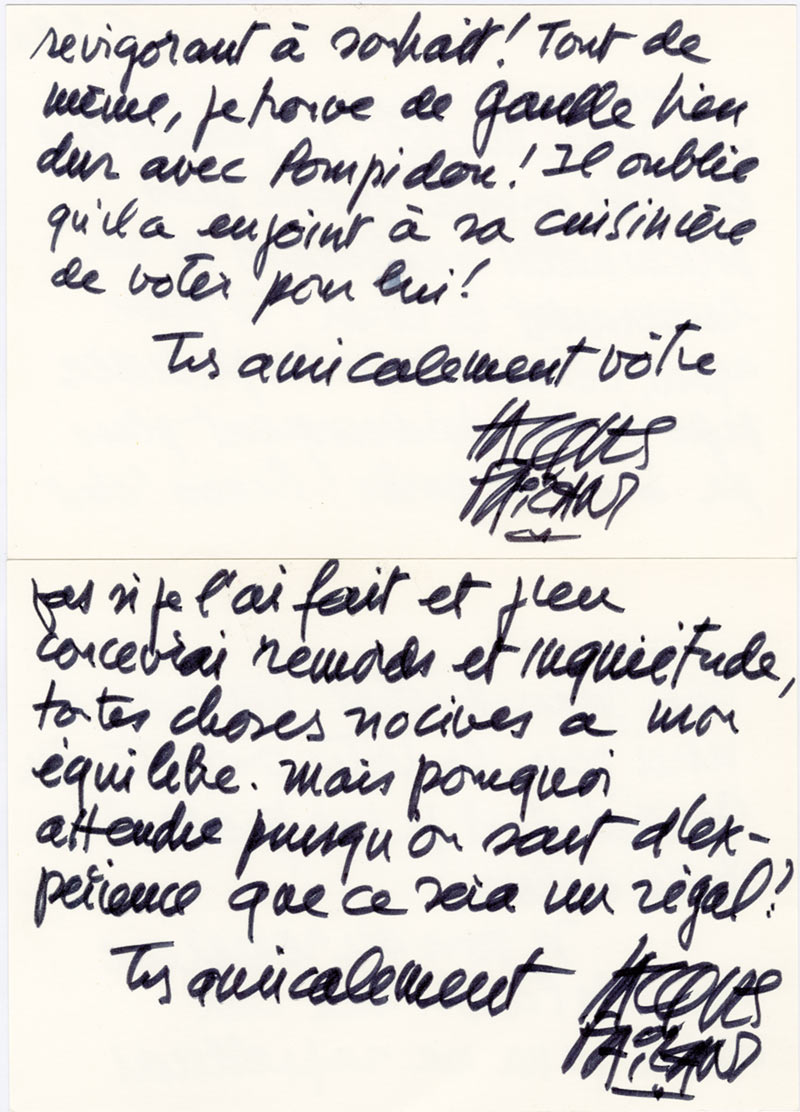 revigorant à souhait! Tout de
même, je trouve de Gaulle bien
dur avec Pompidou! Il oublie
qu'il a enjoint à sa cuisinière
de voter pour lui!
Très amicalement vôtre
JACQUES
FAIZANT
pas si je l'ai fait et j'en
concevrai remords et inquiétude,
toutes choses nocives a mon
équilibre. Mais pourquoi
attendre puisqu'on sait d'ex-
périence que ce sera un régal?
Très amicalement
JACQUES
FAIZANT